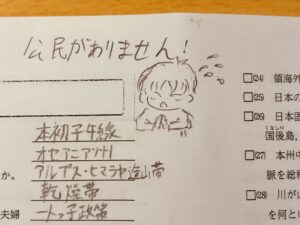 公民がありません!
本初子午線
オセアニア州
アルプス・ヒマラヤ造山帯
か。
乾燥帯
夫婦
一人っ子政策
□(24) 領海外
□(25) 日本の
□(26) 日本固
くなしり
国後島
□(27) 本州中
脈を総称
□(28) 川がい
を何とい